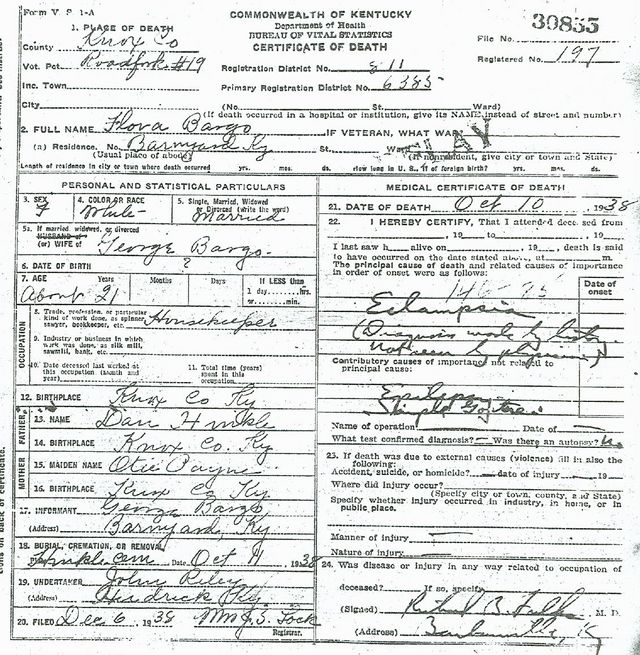 Form V. S. 1-A
COMMONWEALTH OF KENTUCKY
Department of Health
BUREAU OF VITAL STATISTICS
CERTIFICATE OF DEATH
30855
File No.
Registered No. 197
1. PLACE OF DEATH
County Knox Co
Vot. Pct. Roadfork #19
Inc. Town
City
Registration District No. 811
Primary Registration District No. 6385
(No. St. Ward)
(If death occurred in a hospital or institution, give its NAME instead of street and number)
2. FULL NAME Flova Bargo IF VETERAN, WHAT WAR
(a) Residence. No. Barnyard Ky St. Ward
(Usual place of abode) (If nonresident, give city or town and State)
Length of residence in city or town where death occurred yrs. mos. ds. How long in U. S., if of foreign birth? yrs. mos. ds.
PERSONAL AND STATISTICAL PARTICULARS
3. SEX F
4. COLOR OR RACE White
5. Single, Married, Widowed or Divorced (write the word) Married
5a. If married, widowed, or divorced
HUSBAND of
(or) WIFE of George Bargo.
6. DATE OF BIRTH ?
7. AGE Years Months Days If LESS than
About 21 1 day hrs.
or min.
OCCUPATION
8. Trade, profession, or particular
kind of work done, as spinner,
sawyer, bookkeeper, etc. Housekeeper
9. Industry or business in which
work was done, as silk mill,
sawmill, bank, etc.
10. Date deceased last worked at
this occupation (month and
year)
11. Total time (years)
spent in this
occupation
12. BIRTHPLACE Knox Co Ky
FATHER
13. NAME Dan Hinkle
14. BIRTHPLACE Knox Co. Ky
MOTHER
15. MAIDEN NAME Otie Payne
16. BIRTHPLACE Knox Co Ky
17. INFORMANT George Bargo
(Address) Barnyard Ky
18. BURIAL, CREMATION, OR REMOVAL
Place Hinkle cem Date Oct 11 1938
19. UNDERTAKER John Riley
(Address) Hedrick Ky.
20. FILED Dec 6, 1938 Mrs J. S. Lock
Registrar.
MEDICAL CERTIFICATE OF DEATH
21. DATE OF DEATH Oct 10, 1938
22. I HEREBY CERTIFY, That I attended deceased from
, 19 to , 19
I last saw h alive on , 19 , death is said
to have occurred on the date stated above, at m.
The principal cause of death and related causes of importance
in order of onset were as follows:
Date of
onset
Eclampsia
(Diagnosis made by history
Not seen by physician)
Contributory causes of importance not related to
principal cause:
Epilepsy
Simple Goitre
Name of operation Date of
What test confirmed diagnosis? Was there an autopsy? No
23. If death was due to external causes (violence) fill in also the
following:
Accident, suicide, or homicide? date of injury 19
Where did injury occur?
(Specify city or town, county, and State)
Specify whether injury occurred in industry, in home, or in
public place.
Manner of injury
Nature of injury
24. Was disease or injury in any way related to occupation of
deceased? If so, specify
(Signed) M. D.
(Address) Barbourville, K
tions on back of certificate.